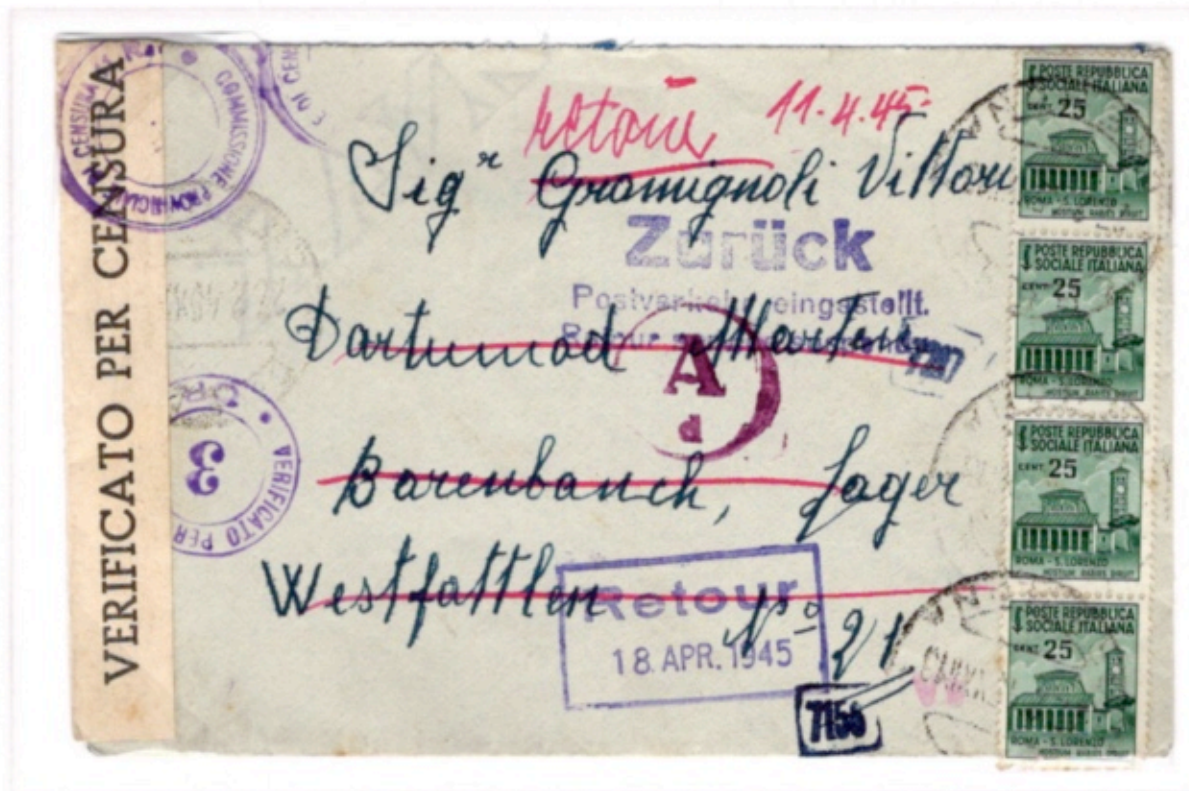 VERIFICATO PER CENSURA
COMMISSIONE PROVINCIALE DI CENSURA
VERIFICATO PER
3
retour 11.4.45
Sigr Gramignoli Vittori
Zurück
Postverkehr eingestellt.
Dartumod Marten
A
d
Barenbauch, Jager
Westfattlen No 21
Retour
18. APR. 1945
7156
POSTE REPUBBLICA
SOCIALE ITALIANA
CENT. 25
ROMA - S. LORENZO
HOSTIUM RABIES DIRUIT
POSTE REPUBBLICA
SOCIALE ITALIANA
CENT. 25
ROMA - S. LORENZO
HOSTIUM RABIES DIRUIT
POSTE REPUBBLICA
SOCIALE ITALIANA
CENT. 25
ROMA - S. LORENZO
HOSTIUM RABIES DIRUIT
POSTE REPUBBLICA
SOCIALE ITALIANA
CENT. 25
ROMA - S. LORENZO
HOSTIUM RABIES DIRUIT